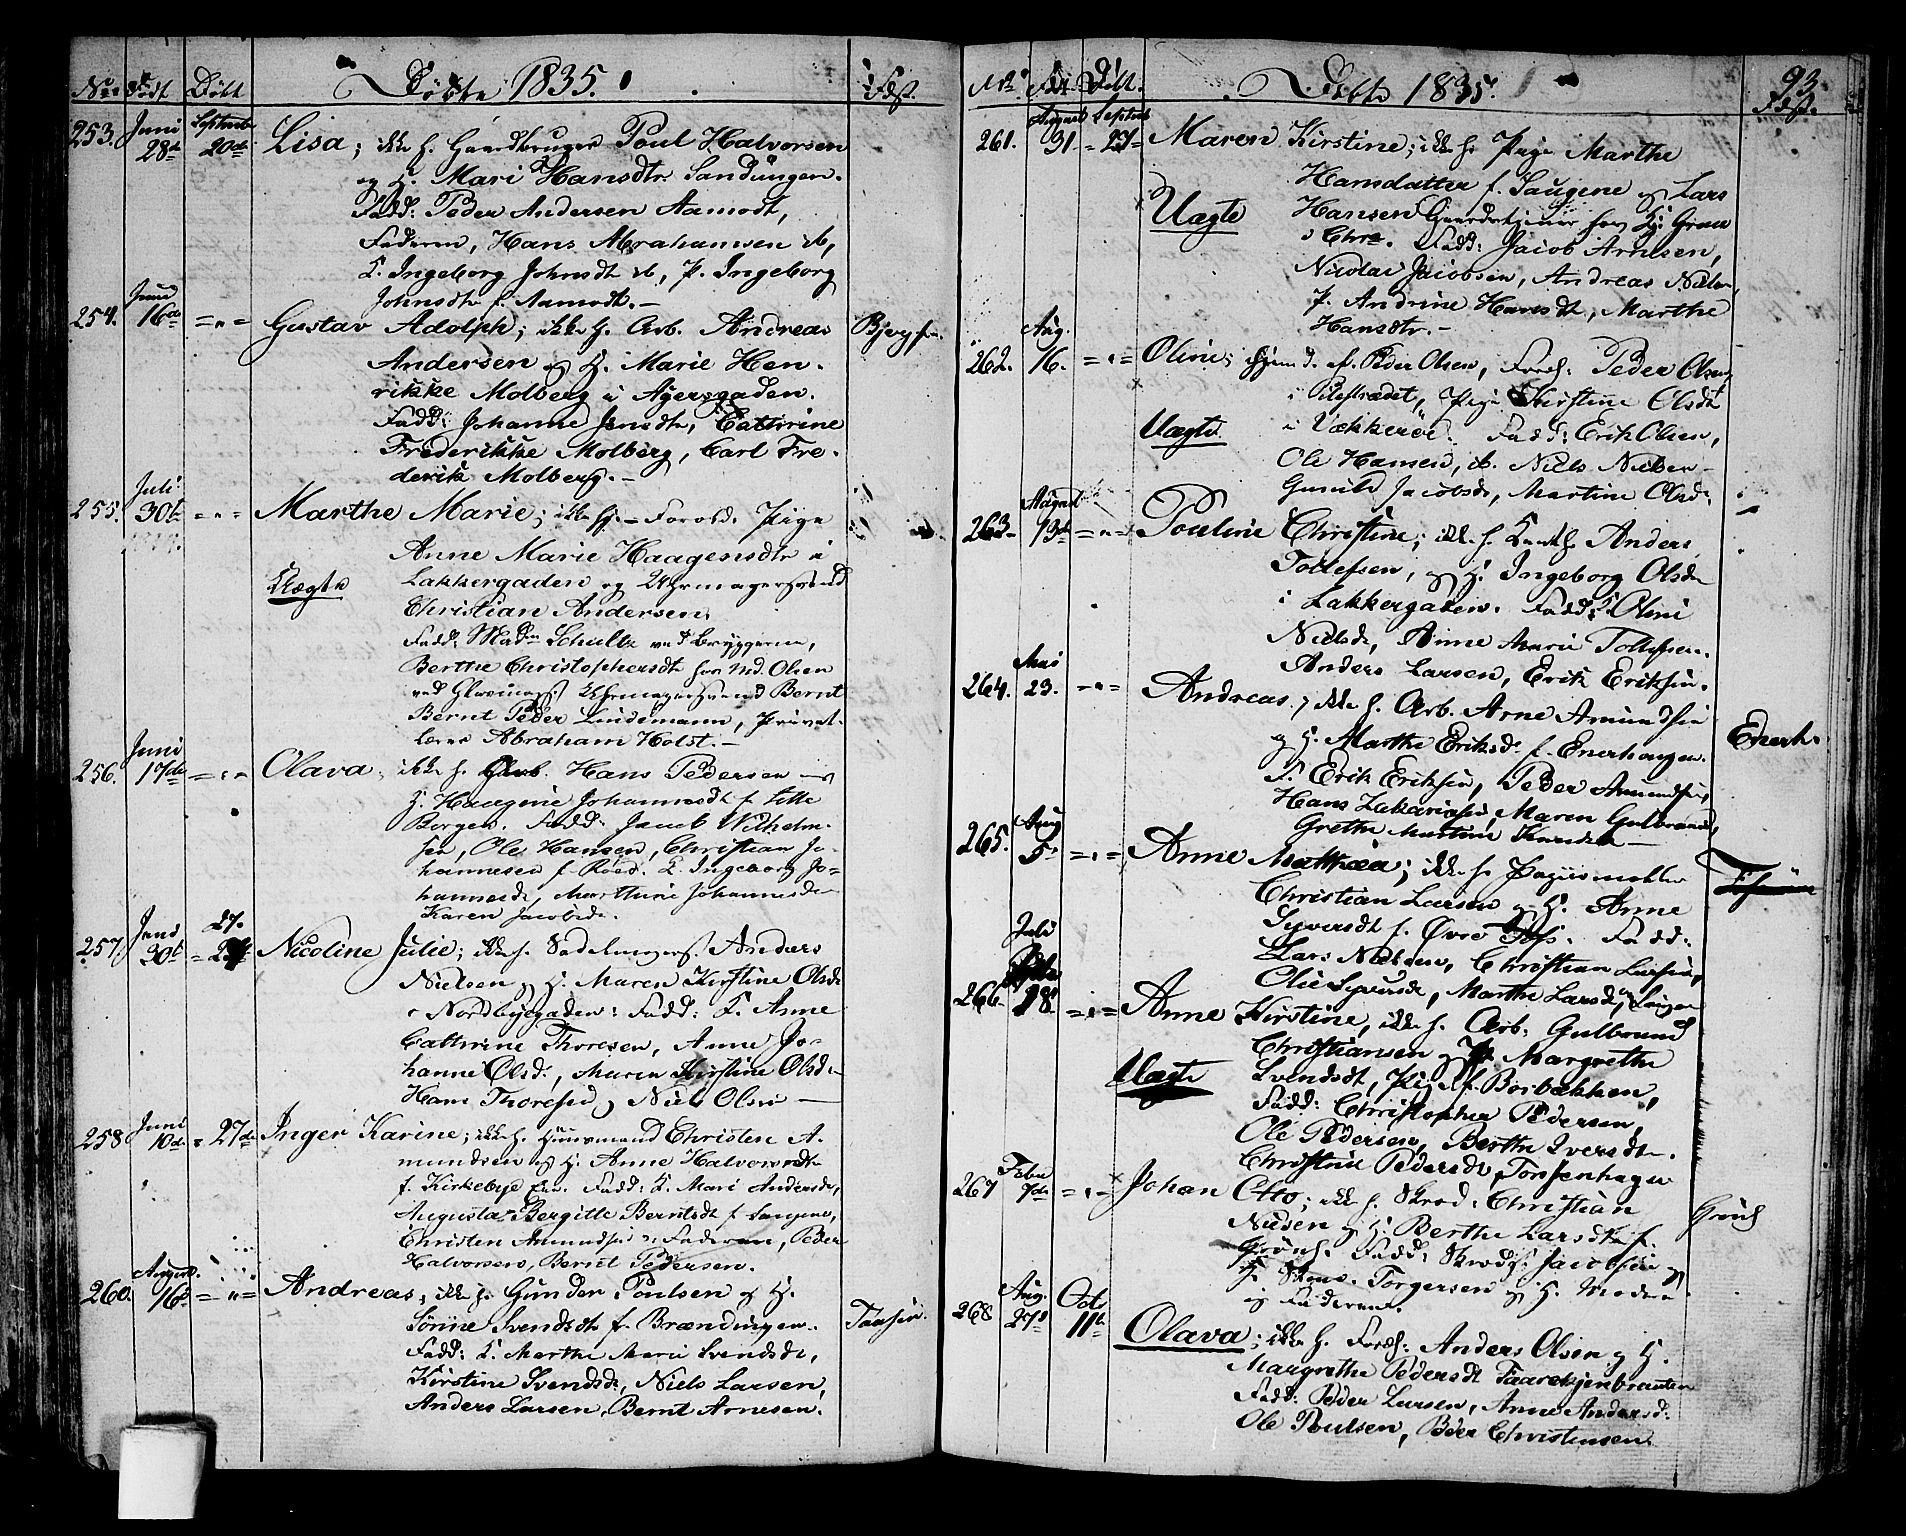 No. Født Døbt Døbte 1835. Fdst.
253. Juni 28de Septembr 20de Lisa; Poul Halvorsen
og H. Mari Hansdtr Sandungen.
Fadd: Peder Andersen Aamodt,
Faderen, Hans Abrahamsen ib,
K. Ingeborg Johnsdtr ib, P. Ingeborg
Johnsdtr f. Aamodt.–
254. Juni 16de –"– Gustav Adolph; ikke h. Arb. Andreas
Andersen og H. Marie Hen-
rikke Molberg i Agersgaden.
Fadd: Johanne Jensdtr, Cathrine
Frederikke Molberg, Carl Fre-
derik Molberg.–
255. Juli 30te –"– Marthe Marie; Pige
Anne Marie Haagensdtr i
Uægte Lakkergaden og Uhrmagersvend
Christian Andersen.
Fadd: Madm Schultz ved Bryggerin,
Berthe Christophersdtr hos Md. Olsen
ved Uhrmagersvend Bernt
Bernt Peder Lindemann, Privat-
lærer Abraham Holst.–
256. Juni 17de –"– Olava, ikke h. Hans Pedersen og
H. Haagine Johannesdtr f. Lille
Borgen. Fadd: Jacob Wilhelm-
sen, Ole Hansen, Christian Jo-
hannesen f. Røed. K. Ingeborg Jo-
hannesdr, Marthine Johannesdr
Karen Jacobsdr.
257. Juni 30te 27. Nicoline Julie; ikke h. Anders
Nielsen og H. Maren Kirstine Olsdr
i Nordbyegaden: Fadd: K. Anne
Cathrine Thoresen, Anne Jo-
hanne Olsdr., Maren Kirstine Olsdr
Hans Thoresen og Niels Olsen –
258 Juni 10de 27de Inger Karine; ikke h. Huusmand Christen A-
mundsen og H. Anne Halvorsdtr
f. Kirkebye Fadd: K. Mari Andersdr,
Augusta Bergitte Berntsdtr f. Saugene,
Christen Amundsen Faderen, Peder
Halvorsen, Bernt Pedersen.
260. August 16de –"– Andreas, ikke h. Gunder Poulsen og H.
Sørine Svendsdtr f. Brændingen.
Fadd: K. Marthe Marie Svendsdr,
Kirstine Svendsdr, Niels Larsen,
Anders Larsen, Bernt Arnesen.
No. Født Døbt. Døbte 1835. 93.
Fdst.
261. August 31. Septbr 27 Maren Kirstine; ikke h. Pige Marthe
Hansdatter f. Saugene og Lars
Uægte Hansen Gaardskarl hos H: Grøn
i Chra. Fadd: Jacob Arnesen,
Nicolai Jacobsen, Andreas Nielsen,
P. Andrine Hansdtr, Marthe
Hansdtr.–
262. Aug. 16. –"– Oline; af Peder Olsen, Peder Olsen
i Pilestrædet, Pige Kirstine Olsdtr
Uægte i Vækkerøe. Fadd: Erik Olsen,
Ole Hansen, ib. Niels Nielsen
Gunild Jacobsdr, Martine Olsdr.
263. August 13de –"– Pouline Christine; ikke h. Anders
Tollefsen, og H. Ingeborg Olsdr
i Lakkergaden. Fadd: K. Oline
Nielsdr, Anne Marie Tollefsen.
Anders Larsen, Erik Eriksen.
264. Mai 23. –"– Andreas; ikke h. Arb. Arne Amundsen
og H. Marthe Eriksdr f. Enerhaugen. Enerh.
F. Erik Eriksen, Peder Amundsen,
Hans Zakariasen, Maren Gulbrands,
Grethe Martine
265. Aug 5. –"– Anne Mathea; ikke h.
Christian Larsen og H. Anne
Syversdtr f. Øvre Foss. Fadd:
Lars Nielsen, Christian Larsen,
Olie Syversdr, Marthe Larsdr,
266. Juli 28. –"– Anne Kirstine, ikke h. Arb: Gulbrand
Christiansen og P. Margrethe
Uægte Svendsdt, Pige f. Borbækken,
Fadd: Christopher Pedersen,
Ole Pedersen, Berthe Iversdtr.
Christine Pedersdr Torshaugen
267 Febr 7de –"– Johan Otto; ikke h. Skred: Christian
Nielsen og H. Berthe Larsdtr f. Grøndl
Grønl. Fadd: Jacobsen
Torgersen og H. Moderen
og Faderen.
268 Aug. 27de Octr 11te Olava; ikke h. Anders Olsen og H.
Margrethe Pedersdt Taarekjenbraaten
Fadd: Peder Larsen, Anne Andersdr.
Ole Poulsen, Peder Christensen.